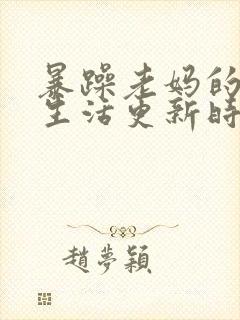 暴躁老妈的
生活更新时
趙夢穎